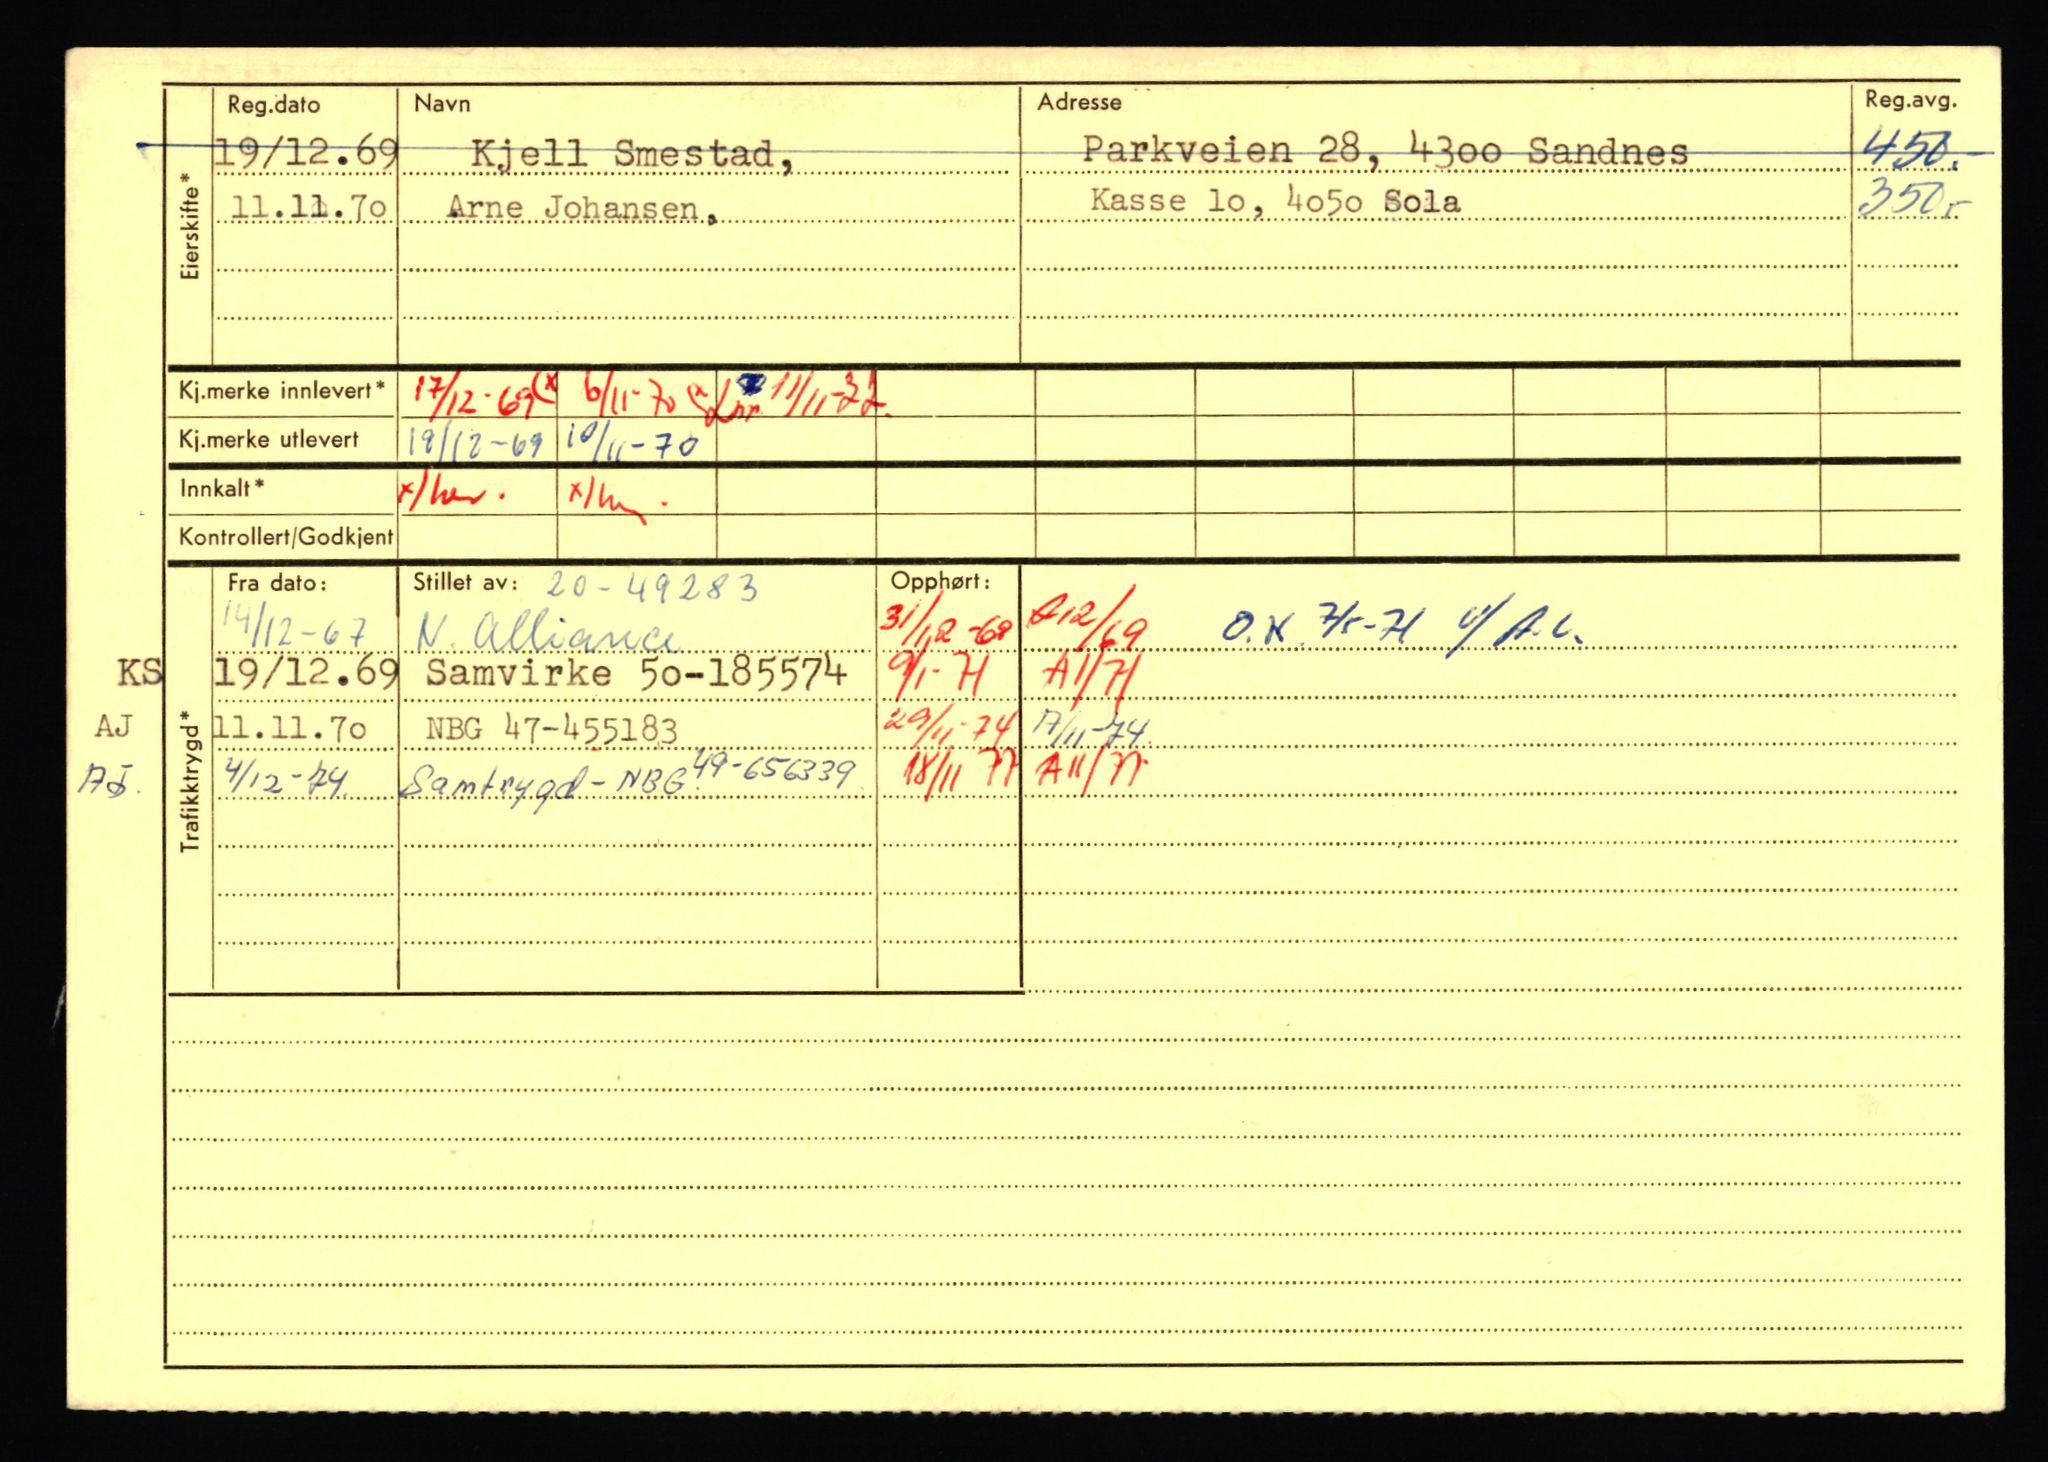 Reg.dato Navn Adresse Reg.avg.
19/12.69 Kjell Smestad, Parkveien 28, 4300 Sandnes 450.-
11.11.70 Arne Johansen. Kasse 10, 4050 Sola 350,-
Eierskifte*
Kj.merke innlevert* 17/12-69 (x 6/11-70 (x 11/11-
Kj.merke utlevert 19/12-69 10/11-70
Innkalt* x/
x/
Kontrollert/Godkjent
Fra dato: Stillet av: 20-49283 Opphørt:
14/12-67 N. Alliance 31/12-69 A12/69 O.K. 7/5-71
KS 19/12.69 Samvirke 50-185574 9/1-71 A1/71
AJ 11.11.70 NBG 47-455183 29/11-74 17/11-74.
AJ. 4/12-74. Samtrygd-NBG 49-656339 18/11 77 A11/77
Trafikktrygd*